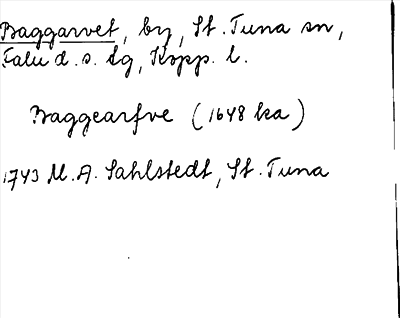 Baggarvet, by, St. Tuna sn,
Falu d. s. tg, Kopp. l.
Baggearfve (1648 ka)
1743 M. A. Sahlstedt, St. Tuna